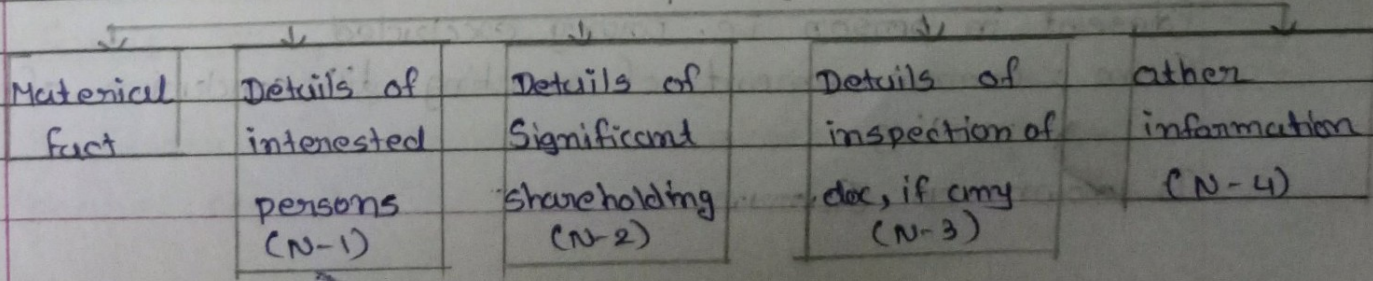 Material
fact
Details of
interested
persons
(N-1)
Details of
Significant
shareholding
(N-2)
Details of
inspection of
doc, if any
(N-3)
other
information
(N-4)